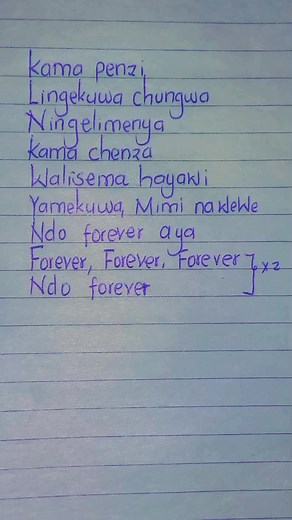 Kama penzi
Lingekuwa chungwa
Ningelimenya
Kama chenza
Walisema hayawi
Yamekuwa, Mimi na wewe
Ndo forever aya
Forever, Forever, Forever ] x2
Ndo forever